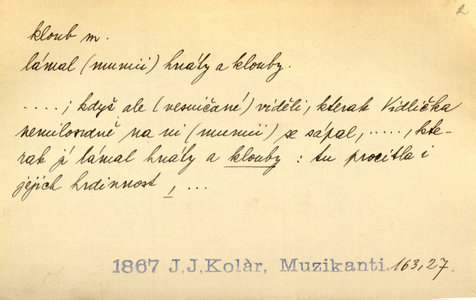 2
kloub m.
lámal (mumii) hnáty a klouby.
....; když ale (vesničané) viděli, kterak Vidlička
nemilosrdně na ni (mumii) se sápal, ....., kte-
rak jí lámal hnáty a klouby : tu procitla i
jejich hrdinnost , ...
1867 J,J,Kolàr, Muzikanti. 163,27.